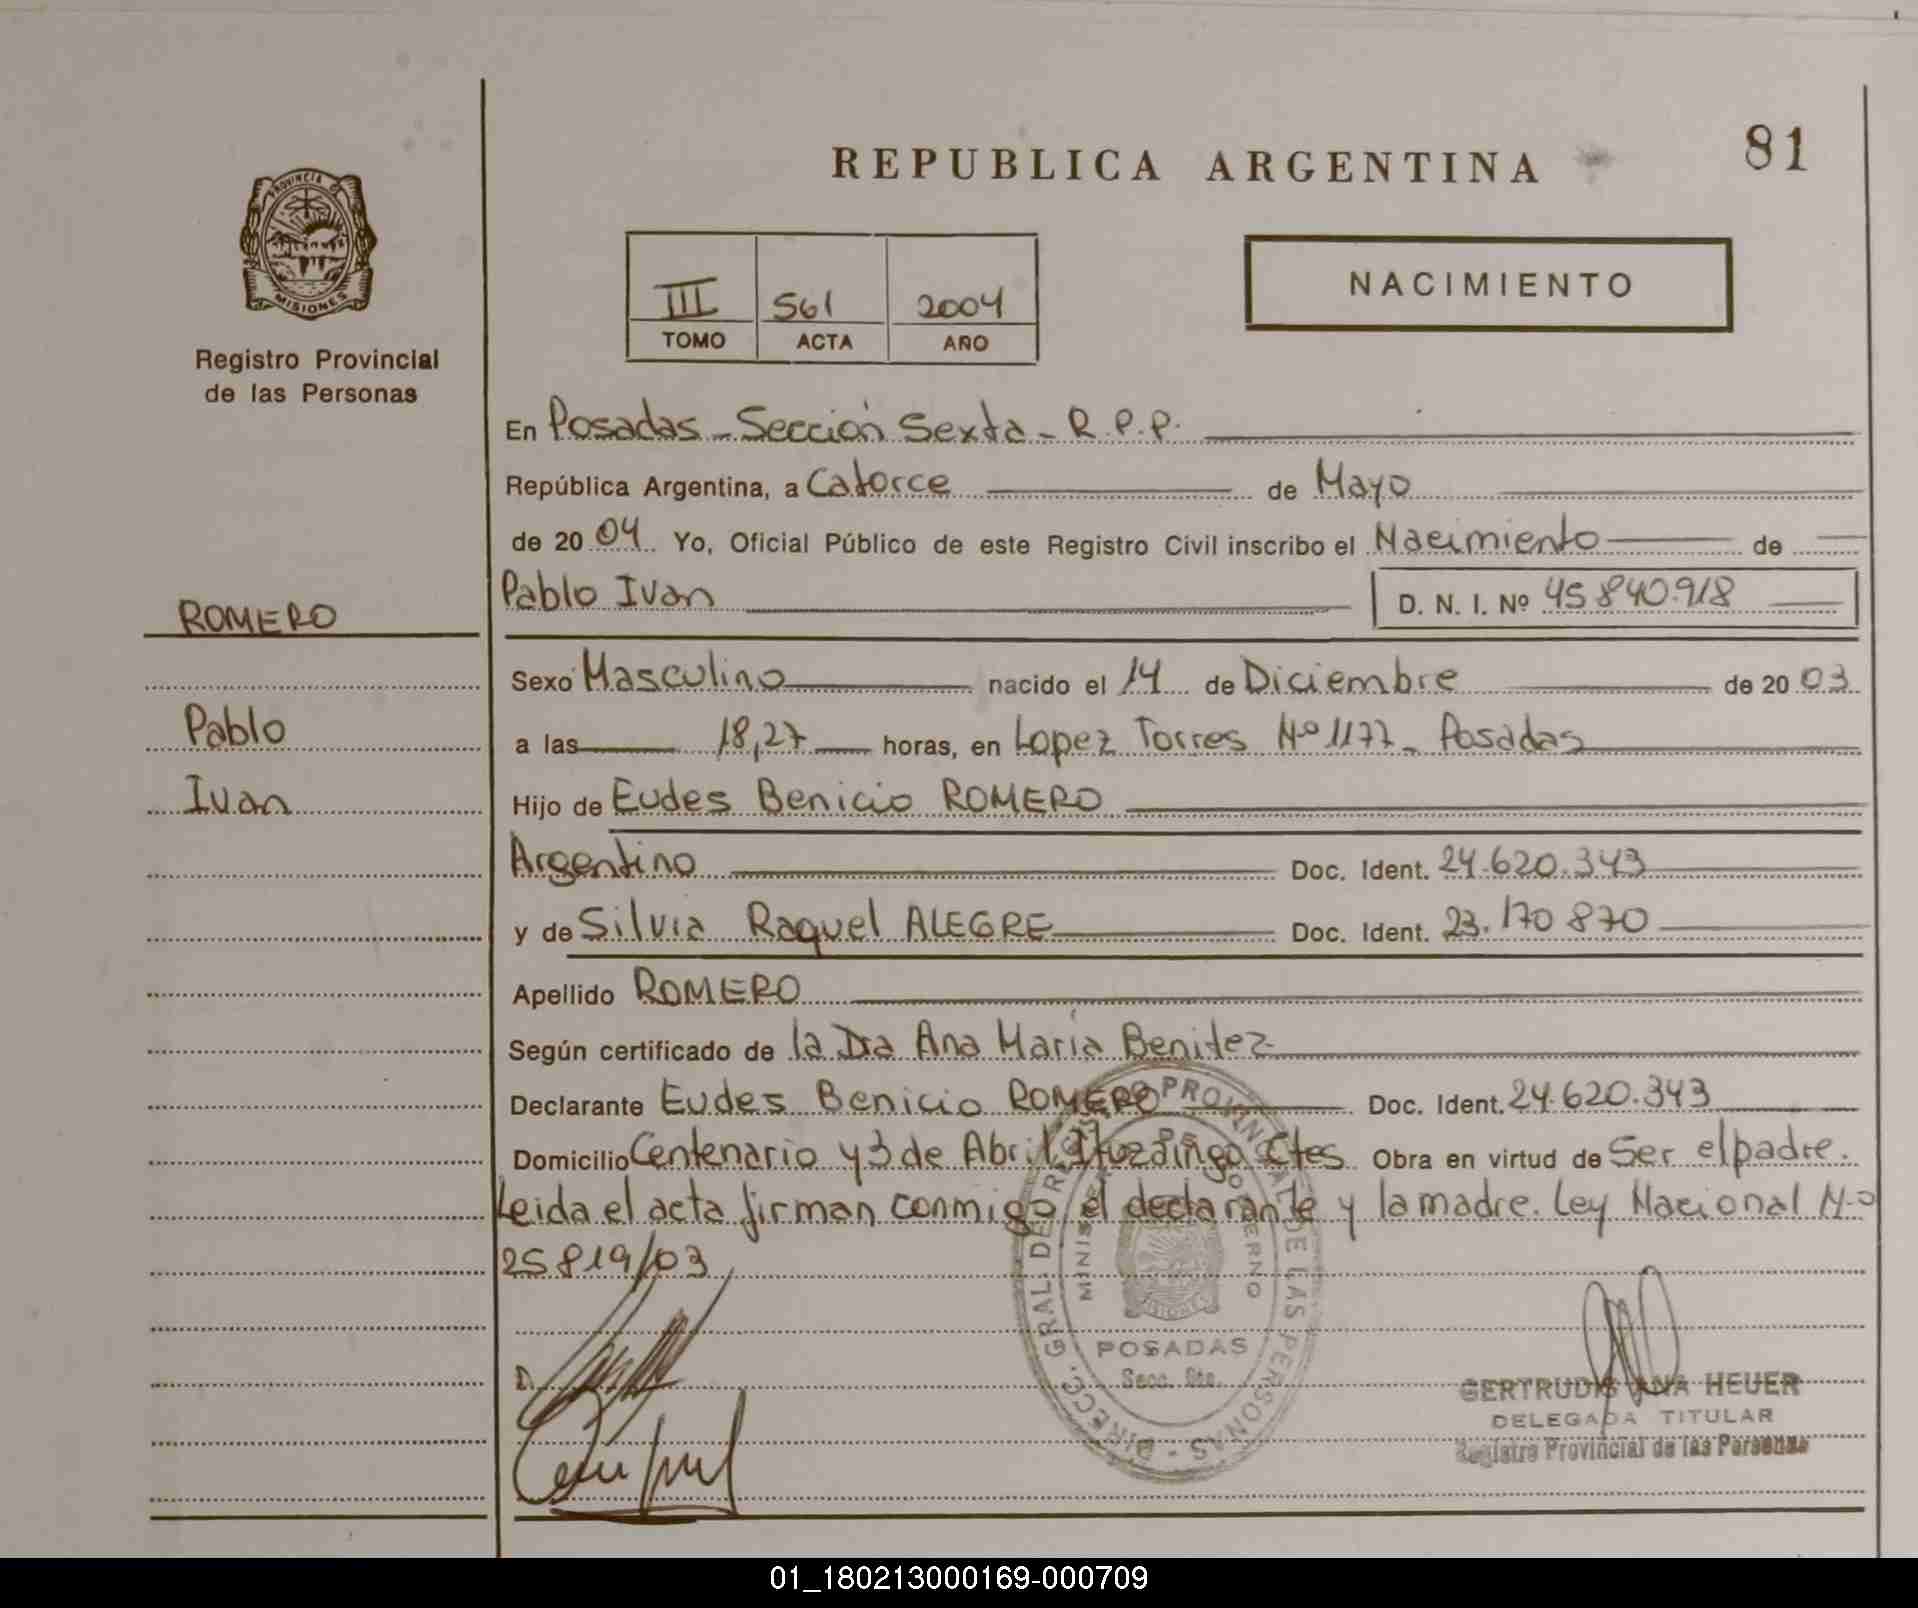 REPUBLICA ARGENTINA
81
PROVINCIA DE
MISIONES
Registro Provincial
de las Personas
III 561 2004
TOMO ACTA AÑO
NACIMIENTO
En Posadas - Sección Sexta - R.P.P.
República Argentina, a Catorce de Mayo
de 20 04 Yo, Oficial Público de este Registro Civil inscribo el Nacimiento de
Pablo Ivan D. N. I. Nº 45.840.918
ROMERO
Pablo
Ivan
Sexo Masculino nacido el 14 de Diciembre de 20 03
a las 18,27 horas, en Lopez Torres Nº 1177 - Posadas
Hijo de Eudes Benicio ROMERO
Argentino Doc. Ident. 24.620.343
y de Silvia Raquel ALEGRE Doc. Ident. 23.170 870
Apellido ROMERO
Según certificado de la Dra Ana María Benitez
Declarante Eudes Benicio ROMERO Doc. Ident. 24.620.343
Domicilio Centenario y 3 de Abril Ituzaingo Ctes Obra en virtud de Ser el padre.
Leida el acta firman conmigo el declarante y la madre. Ley Nacional Nº
25 819/03
DIRECC. GRAL DE REG. PROVINCIAL DE LAS PERSONAS
MINISTERIO DE GOBIERNO
MISIONES
POSADAS
Secc. 6ta.
GERTRUDIS ANA HEUER
DELEGADA TITULAR
Registro Provincial de las Personas
01_180213000169-000709